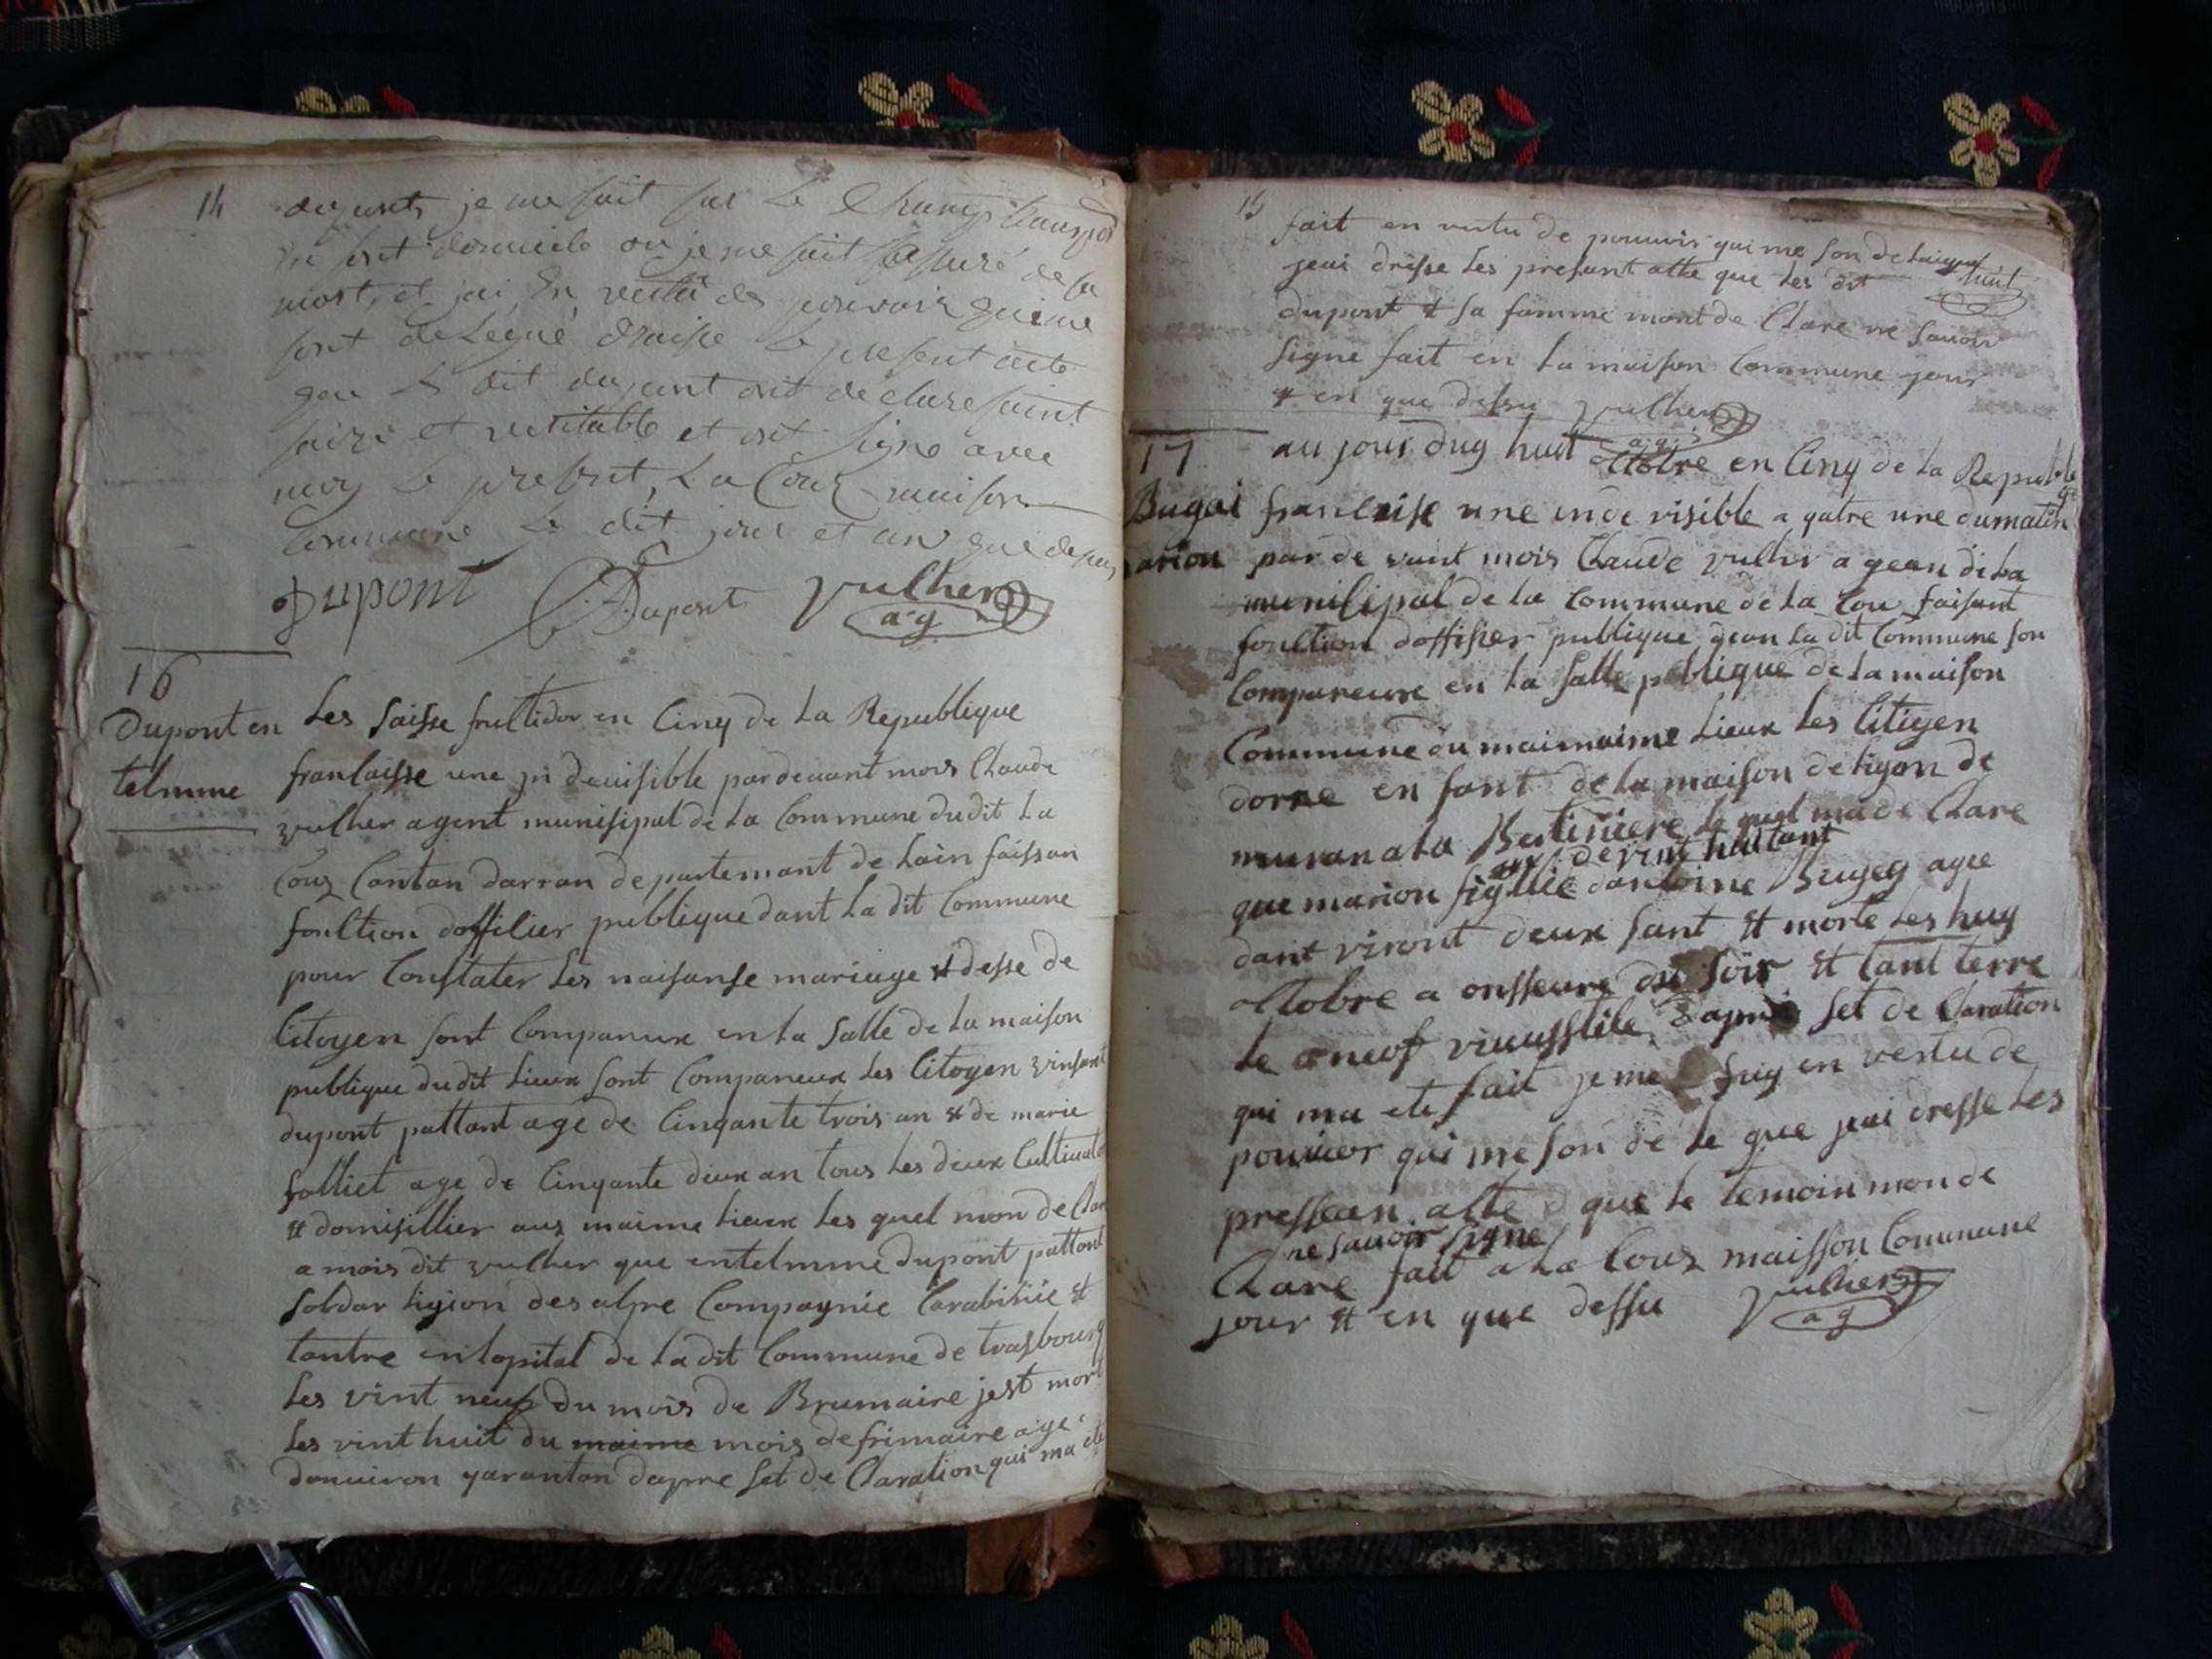 14
dupont, je me suit sur le Champ transpor
son domicile ou je me suit assuré de sa
mort, et jai En vertu des pouvoir qui me
sont delegué draisse le present acte
que le dit dupont ont declare saint
saire et veritable et ont signe avec
moy le present, La Couz maison
Commune le dit jour et an que desus
Dupont Dupont vulher
a g
16
Dupont en
telmme
Les saisse fruttidor en Cinq de La Republique
franlaisse une in deuisible par deuant mois Claude
vulher agent munisipal de La Commune dudit La
Couz Canton darran departemant de Lain faissan
fonltion doffilier publique dant La dit Commune
pour Constater Les naisanse mariage et desse de
Citoyen sont Comparuxe en La Salle de La maison
publique du dit Lieux sont Comparreux Les Citoyen vinsant
dupont pattant age de Cinqante trois an et de marie
folliet age de Cinqante deux an tous Les deux Cultivat
et domisillier aux maime Lieux Les quel mon de Clar
a mois dit vulher que entelmme Dupont pattant
soldar Ligion des alpe Compagnie Carabinie et
tantre en lopital de La dit Commune de trasbourg
Les vint neuf du mois de Brumaire jest mort
Les vint huit du maime mois de frimaire age
danuiron garantan dapre set de Claration qui ma ete
15
fait en vertu de pouvoir qui me son de
huit
jeai drisse Les presant atte que Les dit
dupont et sa famme mont de Clare ne savoir
signe fait en La maison Commune jour
et en que dessu vulher
a g
17
Bugai
arion
au jour duy huit octobre en Cinq de La Republi
franlaise une inde visible a quatre une du matin
par de vant mois Claude vulher a gean de La
munilipal de La Commune de La Cou faisant
fonltion doffisier publique gean La dit Commune son
Compareuxe en La Salle publique de La maison
Commune du maimaime Lieux Les Citigen
dorne en fant de La maison de Ligon de
muran a La Bertiniere Le quel ma de Clare
de vint huitant
que marion figllie dantoine Bugey agee
dant viront deux sant et morte Les huy
oltobre a onsseure du Soir et tant terre
Le neuf vieusstile dapre set de Claration
qui ma ete fait je me suy en vertu de
pouvoier qui me son de Le que jeai dresse Les
pressean alte que Le temoin mon de
ne sauoir Signe
Clare fait a La Couz maisson Commune
jour et en que dessu vulher
a g